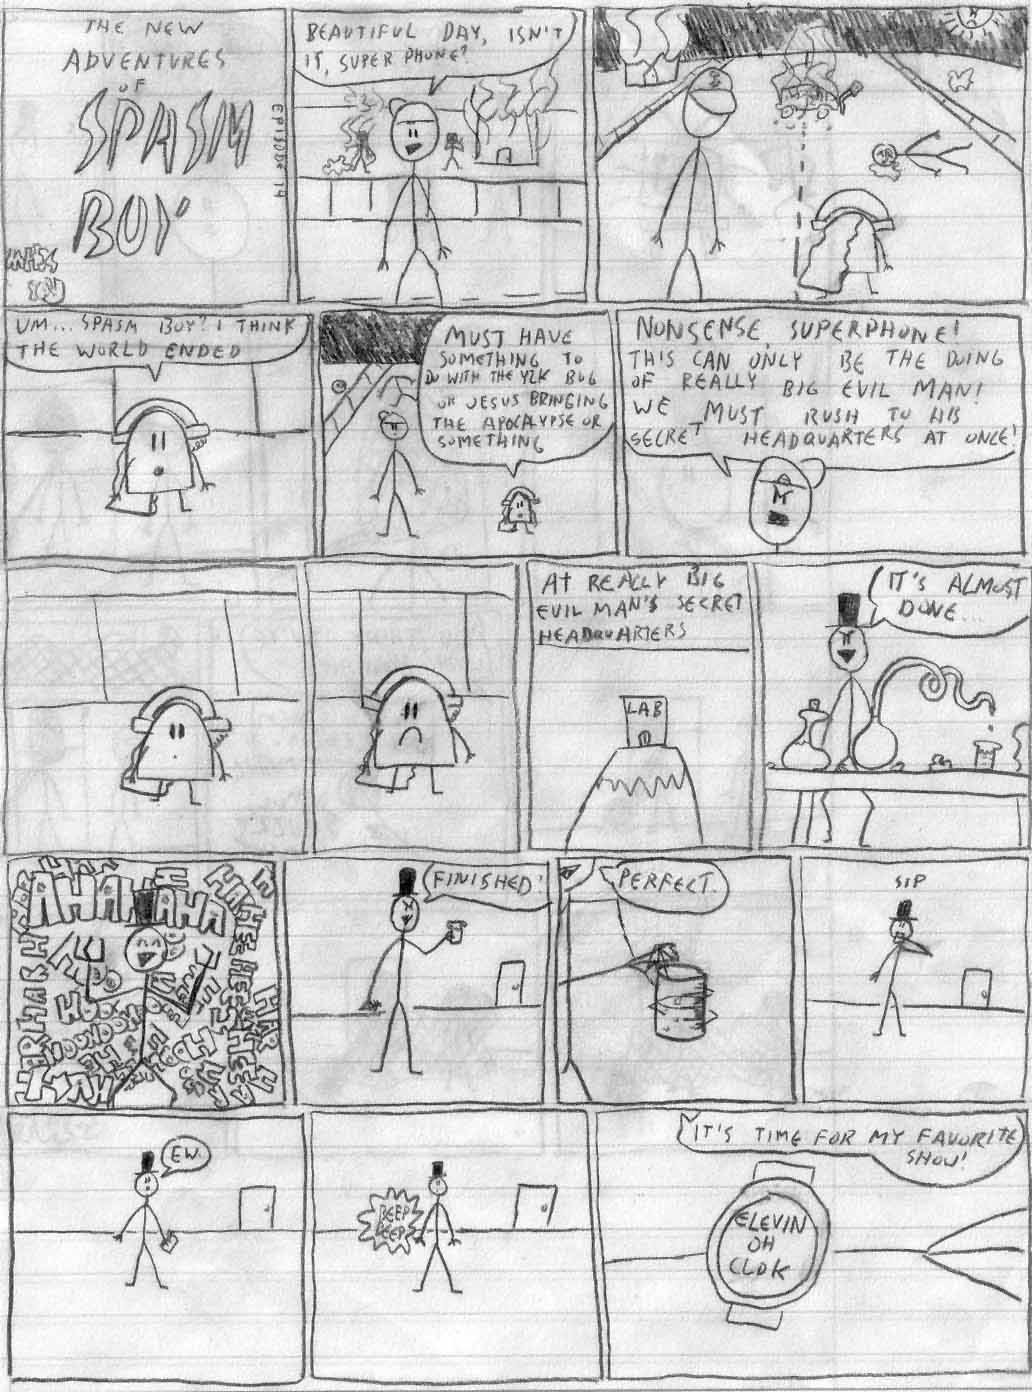 THE NEW
ADVENTURES
OF
SPASM
BOY
EPISODE 14
BEAUTIFUL DAY, ISN'T
IT, SUPER PHONE?
UM... SPASM BOY? I THINK
THE WORLD ENDED
MUST HAVE
SOMETHING TO
DO WITH THE Y2K BUG
OR JESUS BRINGING
THE APOCALYPSE OR
SOMETHING
NONSENSE, SUPERPHONE!
THIS CAN ONLY BE THE DOING
OF REALLY BIG EVIL MAN!
WE MUST RUSH TO HIS
SECRET HEADQUARTERS AT ONCE!
AT REALLY BIG
EVIL MAN'S SECRET
HEADQUARTERS
LAB
IT'S ALMOST
DONE...
FINISHED!
PERFECT.
SIP
EW.
BEEP
BEEP
IT'S TIME FOR MY FAVORITE
SHOW!
ELEVIN
OH
CLOK